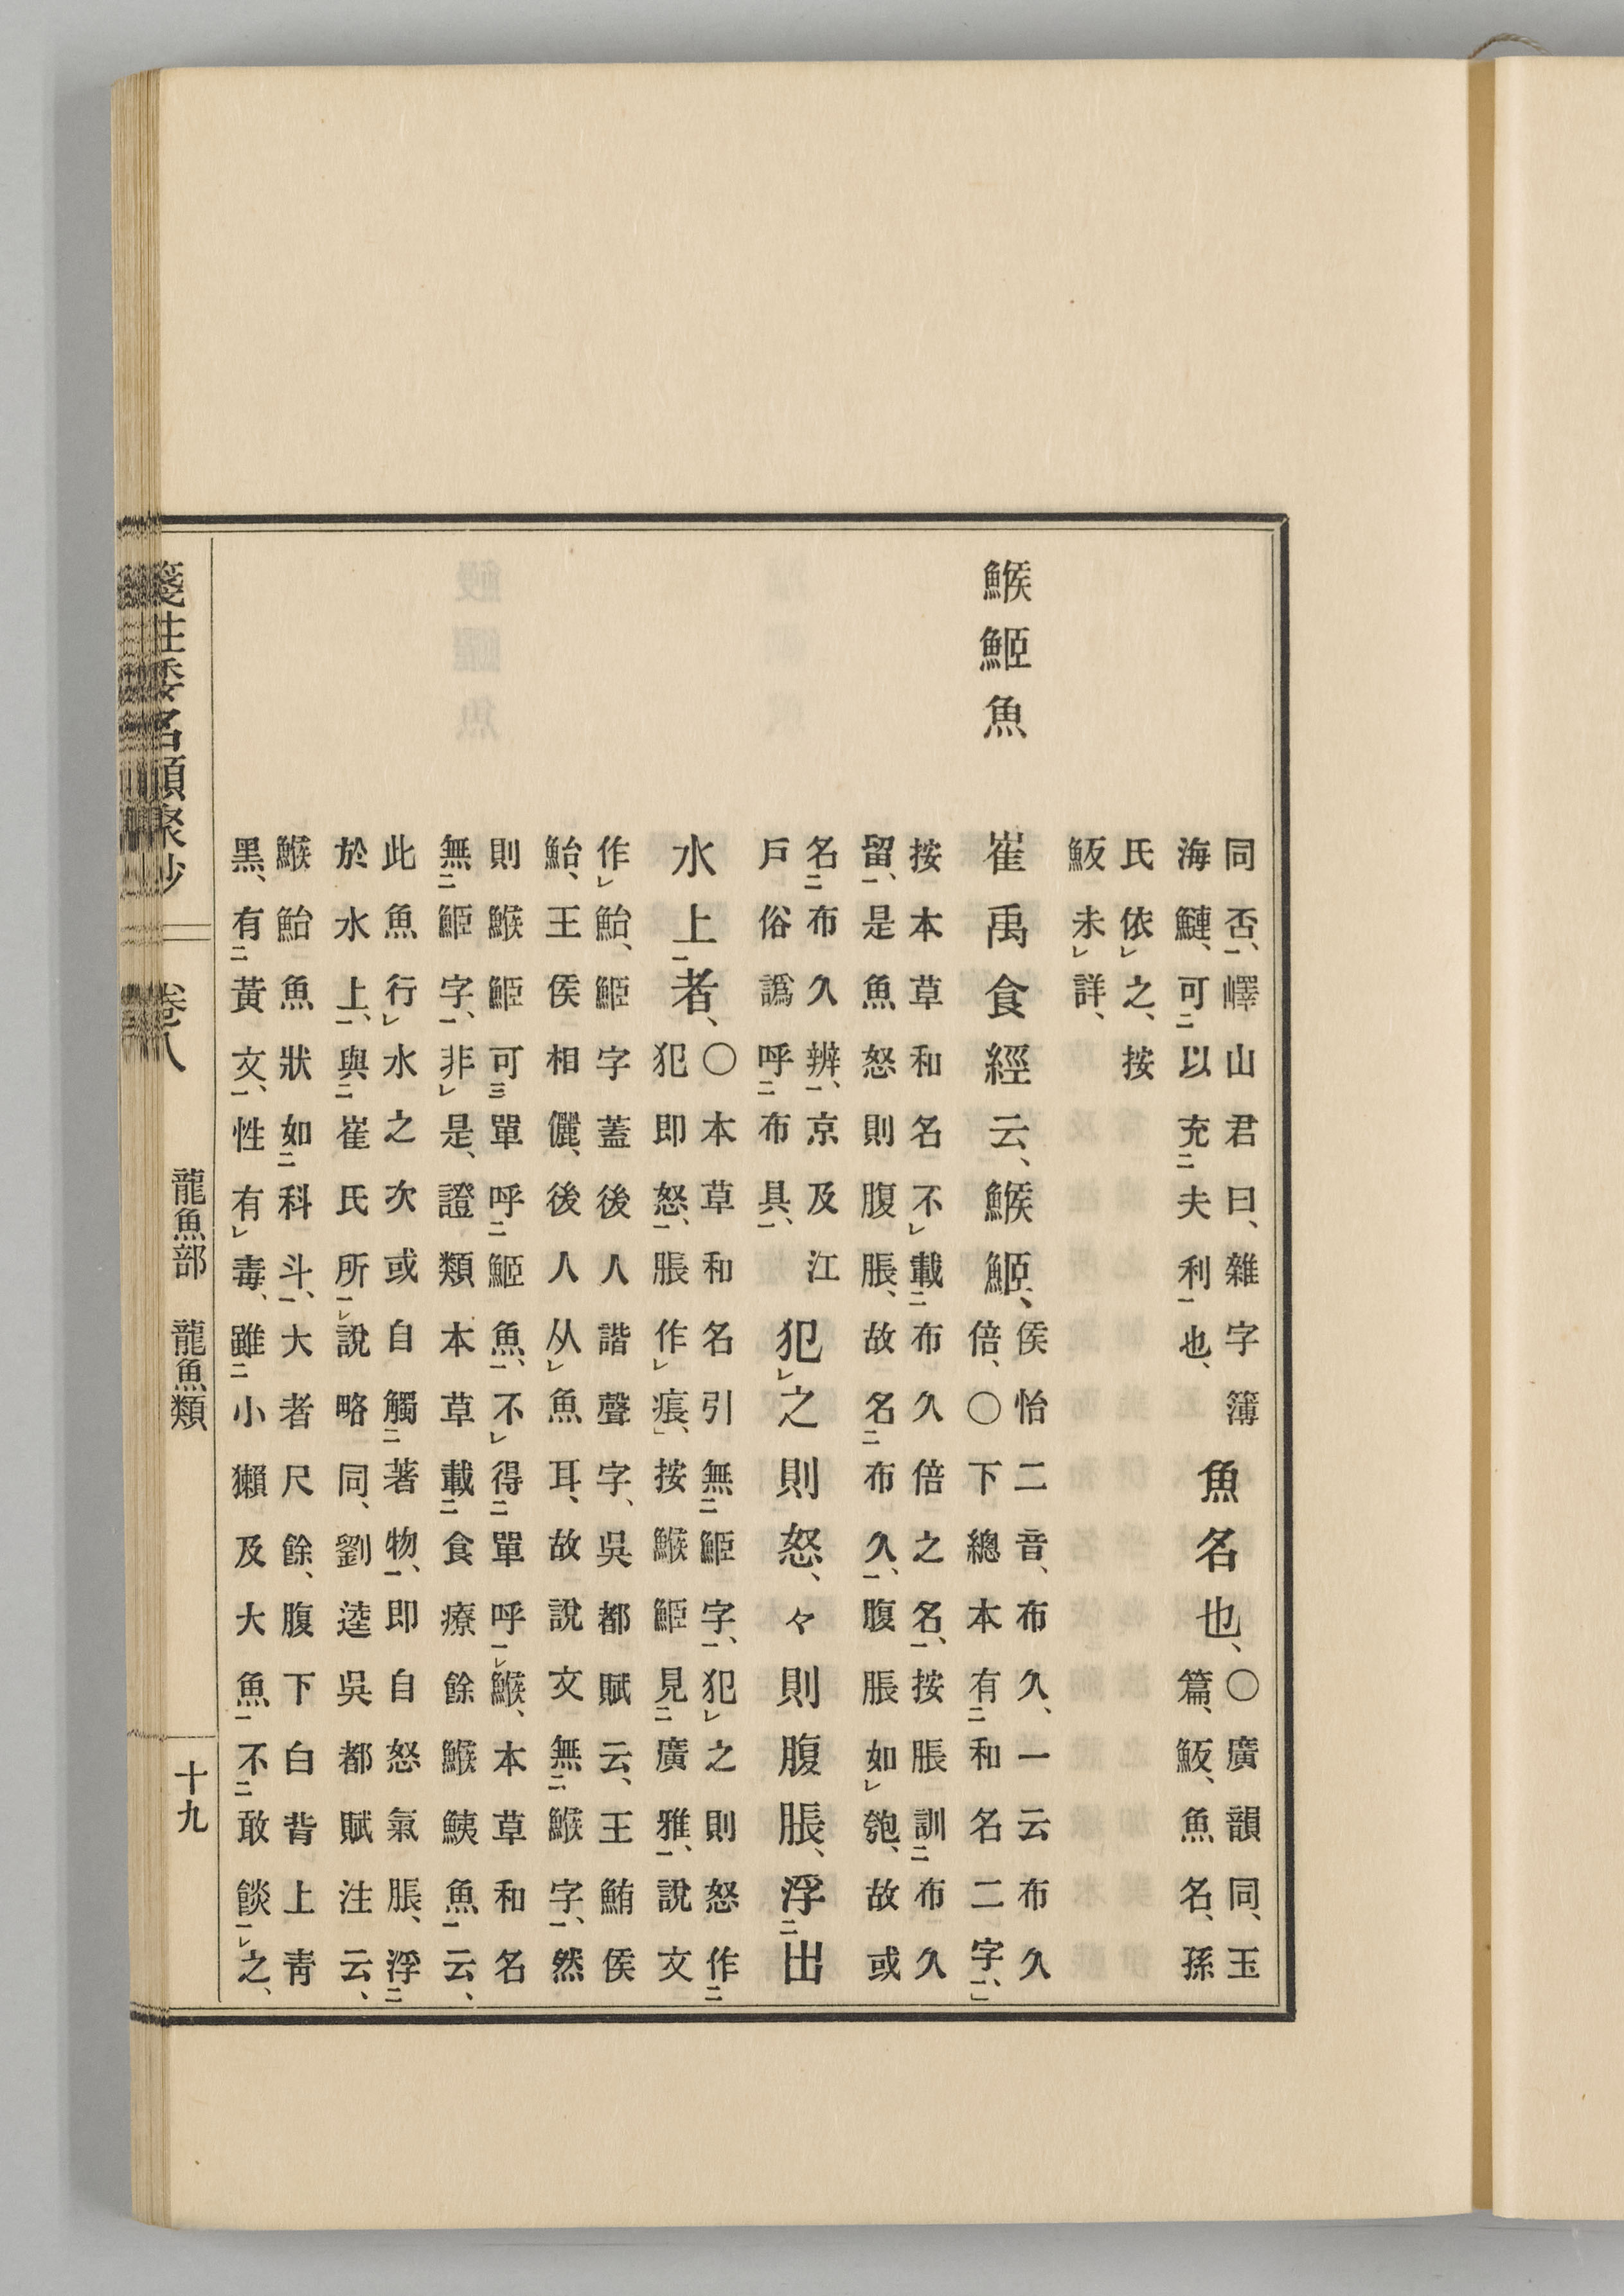 同否、嶧山君曰、雜字簿
海鰱、可以充夫利也、
魚名也、
○廣韻同、玉
篇、魬、魚名、孫
氏依之、按
魬未詳、
鯸䱌魚
崔禹食經云、鯸䱌、
侯怡二音、布久、一云布久
倍、○下總本有和名二字、
按本草和名不載布久倍之名、按脹訓布久
留、是魚怒則腹脹、故名布久、腹脹如匏、故或
名布久辨、京及江
戶俗譌呼布具、
犯之則怒、々則腹脹、浮出
水上者、
○本草和名引無䱌字、犯之則怒作
犯即怒、脹作痮、按鯸䱌見廣雅、說文
作鮐、䱌字蓋後人諧聲字、吳都賦云、王鮪侯
鮐、王侯相儷、後人从魚耳、故說文無鯸字、然
則鯸䱌可單呼䱌魚、不得單呼鯸、本草和名
無䱌字、非是、證類本草載食療餘鯸鮧魚云、
此魚行水之次或自觸著物、即自怒氣脹、浮
於水上、與崔氏所說略同、劉逵吳都賦注云、
鯸鮐魚狀如科斗、大者尺餘、腹下白背上青
黑、有黃文、性有毒、雖小獺及大魚不敢餤之、
箋注倭名類聚抄 卷八 龍魚部 龍魚類 十九